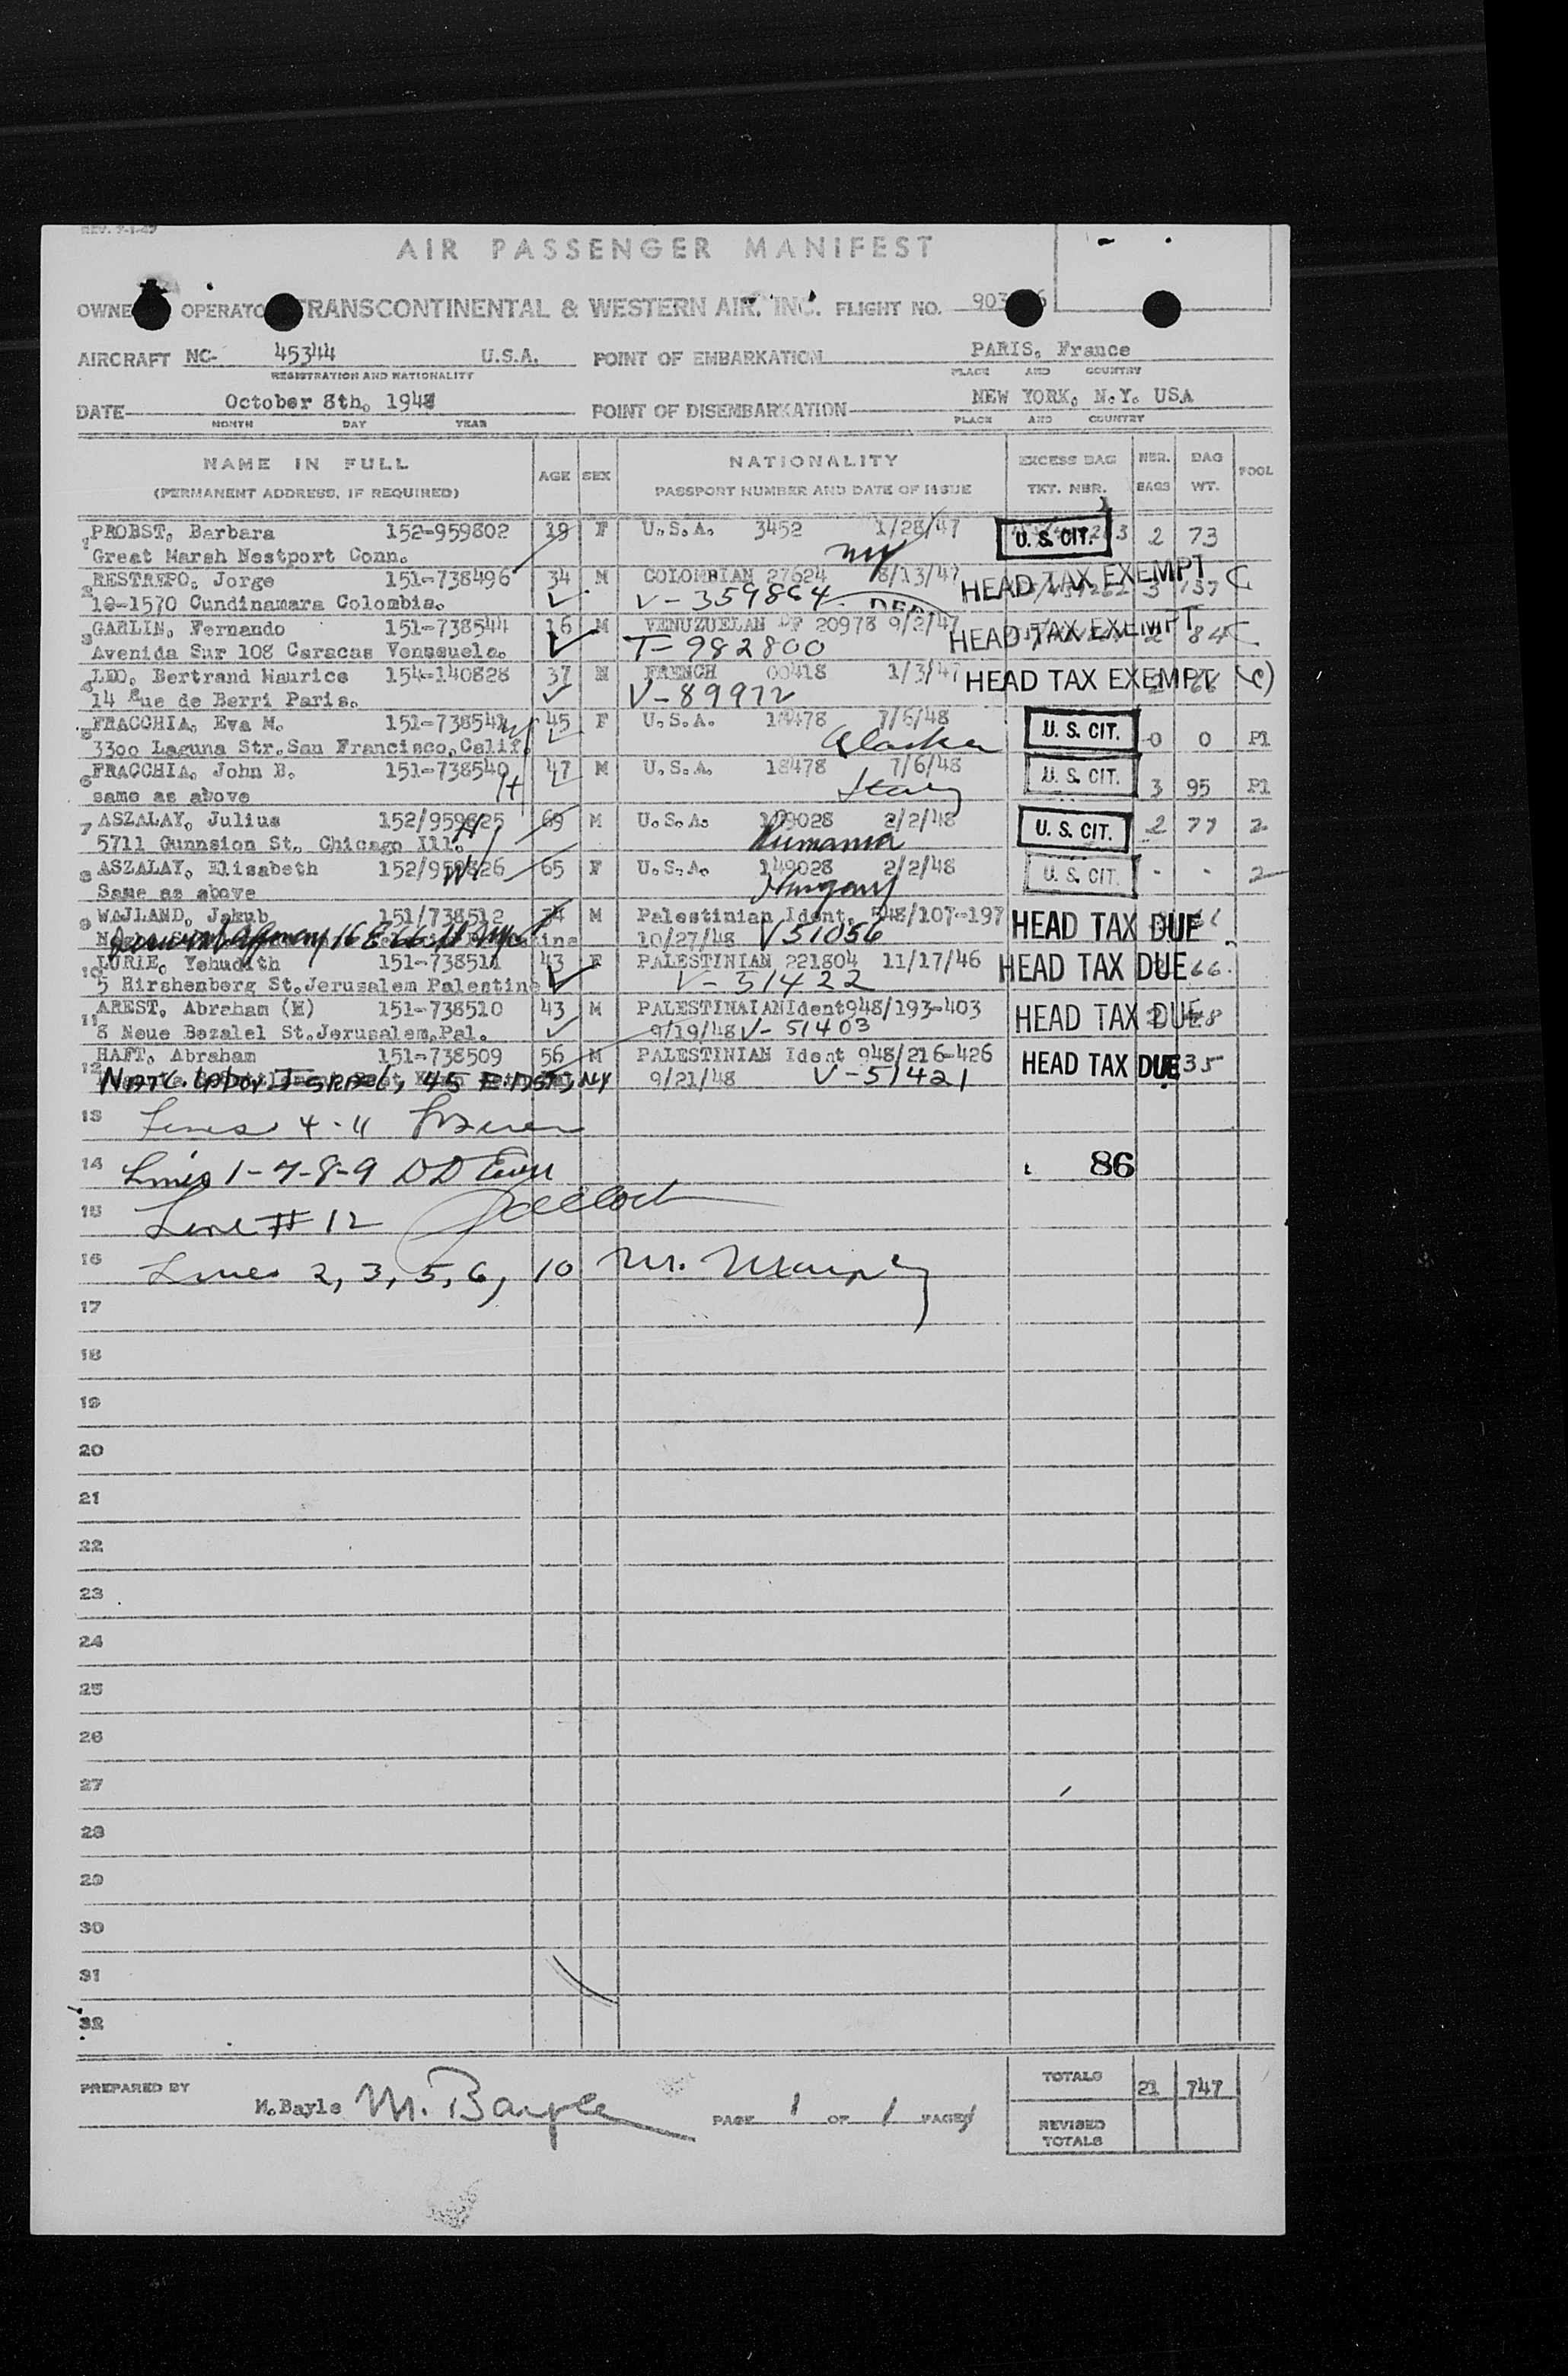 REV. 7-1-47
AIR PASSENGER MANIFEST
OWNE OPERATO TRANSCONTINENTAL & WESTERN AIR. INC. FLIGHT NO. 903 6
AIRCRAFT NC- 45344 U.S.A. POINT OF EMBARKATION PARIS, France
REGISTRATION AND NATIONALITY PLACE AND COUNTRY
DATE October 8th, 1948 POINT OF DISEMBARKATION NEW YORK, N.Y. USA
MONTH DAY YEAR PLACE AND COUNTRY
NAME IN FULL AGE SEX NATIONALITY EXCESS BAG NBR. BAG POOL
(PERMANENT ADDRESS, IF REQUIRED) PASSPORT NUMBER AND DATE OF ISSUE TKT. NBR. BAGS WT.
1 PROBST, Barbara 152-959802 19 F U.S.A. 3452 1/28/47 U. S. CIT. 2 73
Great Marsh Nestport Conn. NY
2 RESTREPO, Jorge 151-738496 34 M COLOMBIAN 27624 8/13/47 HEAD TAX EXEMPT 3 137
10-1570 Cundinamara Colombia. V-359864
3 GARLIN, Fernando 151-738544 16 M VENUZUELAN PF 20978 9/2/47 HEAD TAX EXEMPT 84
Avenida Sur 108 Caracas Venezuela. T-982800
4 LEO, Bertrand Maurice 154-140828 37 M FRENCH 00418 1/3/47 HEAD TAX EXEMPT
14 Rue de Berri Paris. V-89972
5 FRACCHIA, Eva M. 151-738541 W 45 F U.S.A. 18478 7/6/48 U. S. CIT. 0 0 P1
3300 Laguna Str.San Francisco,Calif. Alaska
6 FRACCHIA, John B. 151-738540 H 47 M U.S.A. 18478 7/6/48 U. S. CIT. 3 95 P1
same as above Italy
7 ASZALAY, Julius 152/959825 H 69 M U.S.A. 149028 2/2/48 U. S. CIT. 2 77 2
5711 Gunnsion St. Chicago Ill. Rumania
8 ASZALAY, Elisabeth 152/959826 W 65 F U.S.A. 149028 2/2/48 U. S. CIT. - - 2
Same as above Hungary
9 WAJLAND, Jakub 151/738512 34 M Palestinian Ident. 948/107-197 HEAD TAX DUE
Jewish Agency 16 E 66 10/27/48 V51056
10 LURIE, Yehudith 151-738511 43 F PALESTINIAN 221804 11/17/46 HEAD TAX DUE 66
5 Hirshenberg St.Jerusalem Palestine V-51422
11 AREST, Abraham (M) 151-738510 43 M PALESTINAIANIdent948/193-403 HEAD TAX DUE
8 Neue Bezalel St.Jerusalem,Pal. 9/19/48 V-51403
12 HAFT, Abraham 151-738509 56 M PALESTINIAN Ident 948/216-426 HEAD TAX DUE 35
NATC. LABOR ISRAEL, 45 E. NY 9/21/48 V-51421
13 Lines 4-11
14 Lines 1-7-8-9 86
15 Line # 12
16 Lines 2, 3, 5, 6, 10 M. Murphy
17
18
19
20
21
22
23
24
25
26
27
28
29
30
31
32
PREPARED BY M.Bayle M. Bayle PAGE 1 OF 1 PAGES TOTALS 21 747
REVISED TOTALS